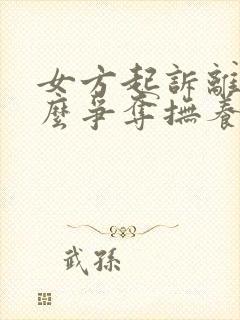 女方起訴離
麼爭奪撫養
武孫